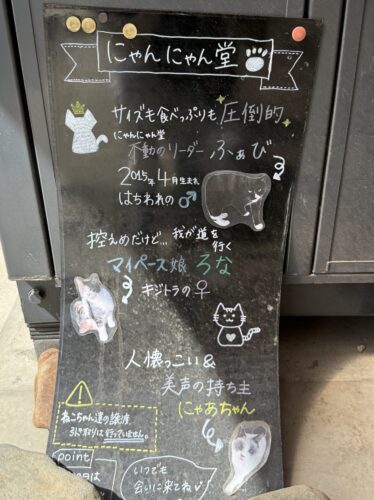 にゃんにゃん堂
サイズも食べっぷりも圧倒的
にゃんにゃん堂
不動のリーダー ふぁび
2015年4月生まれ
はちわれの♂
控えめだけど… 我が道を
行く
マイペース娘 ろな
キジトラの♀
人懐っこい&
美声の持ち主
にゃあちゃん
ねこちゃん達の譲渡
引き取りは行っていません。
point
いつでも
会いに来てね